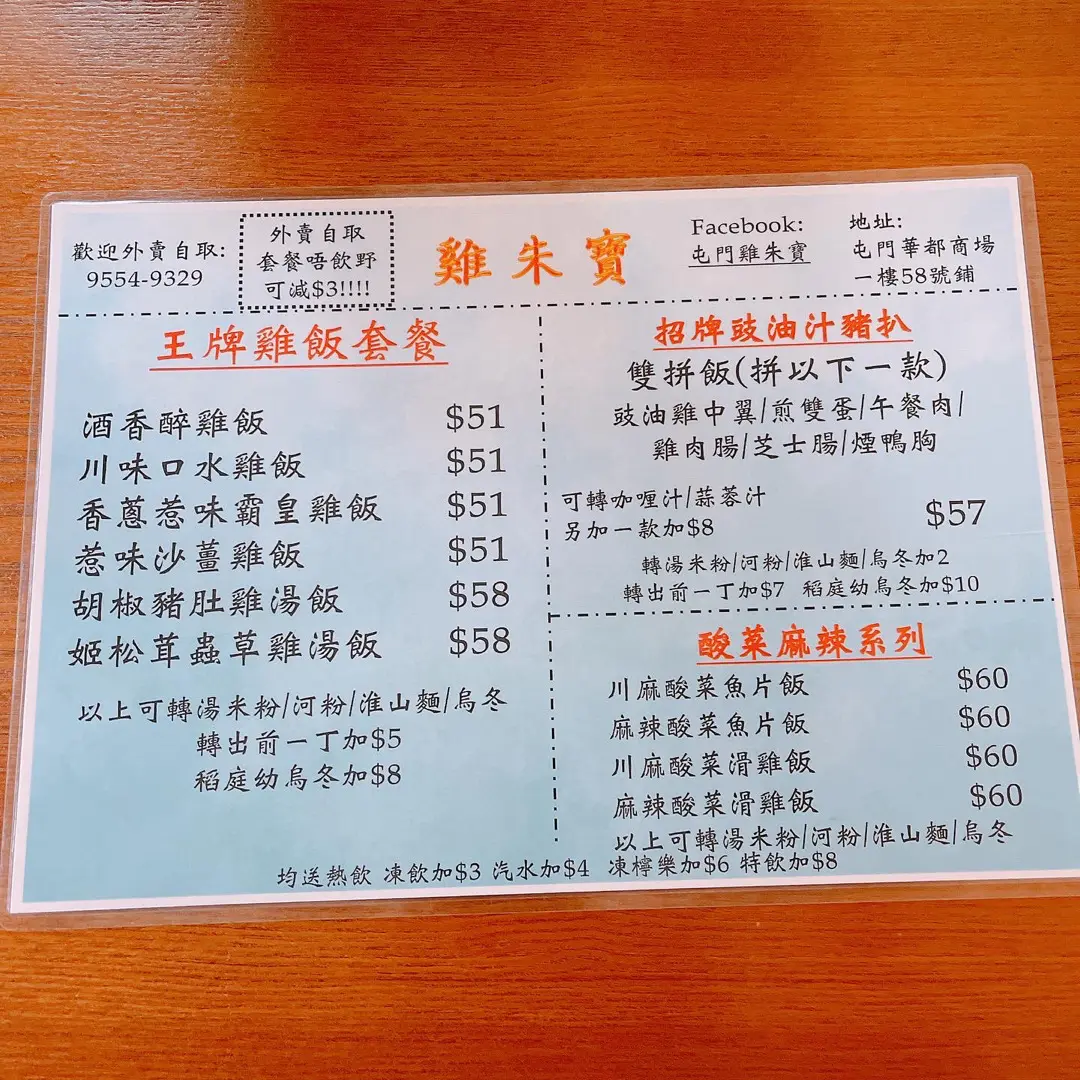 歡迎外賣自取:
9554-9329
外賣自取
套餐唔飲野
可減$3!!!!
雞朱寶
Facebook:
屯門雞朱寶
地址:
屯門華都商場
一樓58號鋪
王牌雞飯套餐
酒香醉雞飯 $51
川味口水雞飯 $51
香蔥惹味霸皇雞飯 $51
惹味沙薑雞飯 $51
胡椒豬肚雞湯飯 $58
姬松茸蟲草雞湯飯 $58
以上可轉湯米粉/河粉/淮山麵/烏冬
轉出前一丁加$5
稻庭幼烏冬加$8
招牌豉油汁豬扒
雙拼飯(拼以下一款)
豉油雞中翼/煎雙蛋/午餐肉/
雞肉腸/芝士腸/煙鴨胸
可轉咖喱汁/蒜蓉汁
另加一款加$8 $57
轉湯米粉/河粉/淮山麵/烏冬加2
轉出前一丁加$7 稻庭幼烏冬加$10
酸菜麻辣系列
川麻酸菜魚片飯 $60
麻辣酸菜魚片飯 $60
川麻酸菜滑雞飯 $60
麻辣酸菜滑雞飯 $60
以上可轉湯米粉/河粉/淮山麵/烏冬
均送熱飲 凍飲加$3 汽水加$4 凍檸樂加$6 特飲加$8